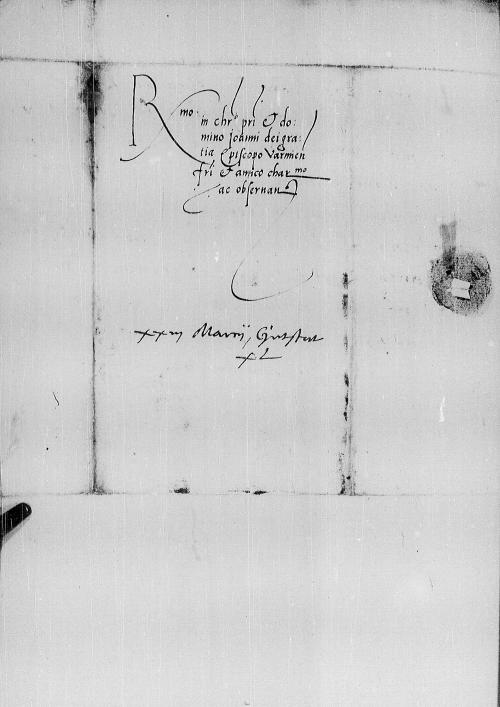 Rmo in chro pri et do:
mino joanni dei gra:
tia Episcopo Varmien
fri et amico charmo
ac observan
xxiii Martii,
xL